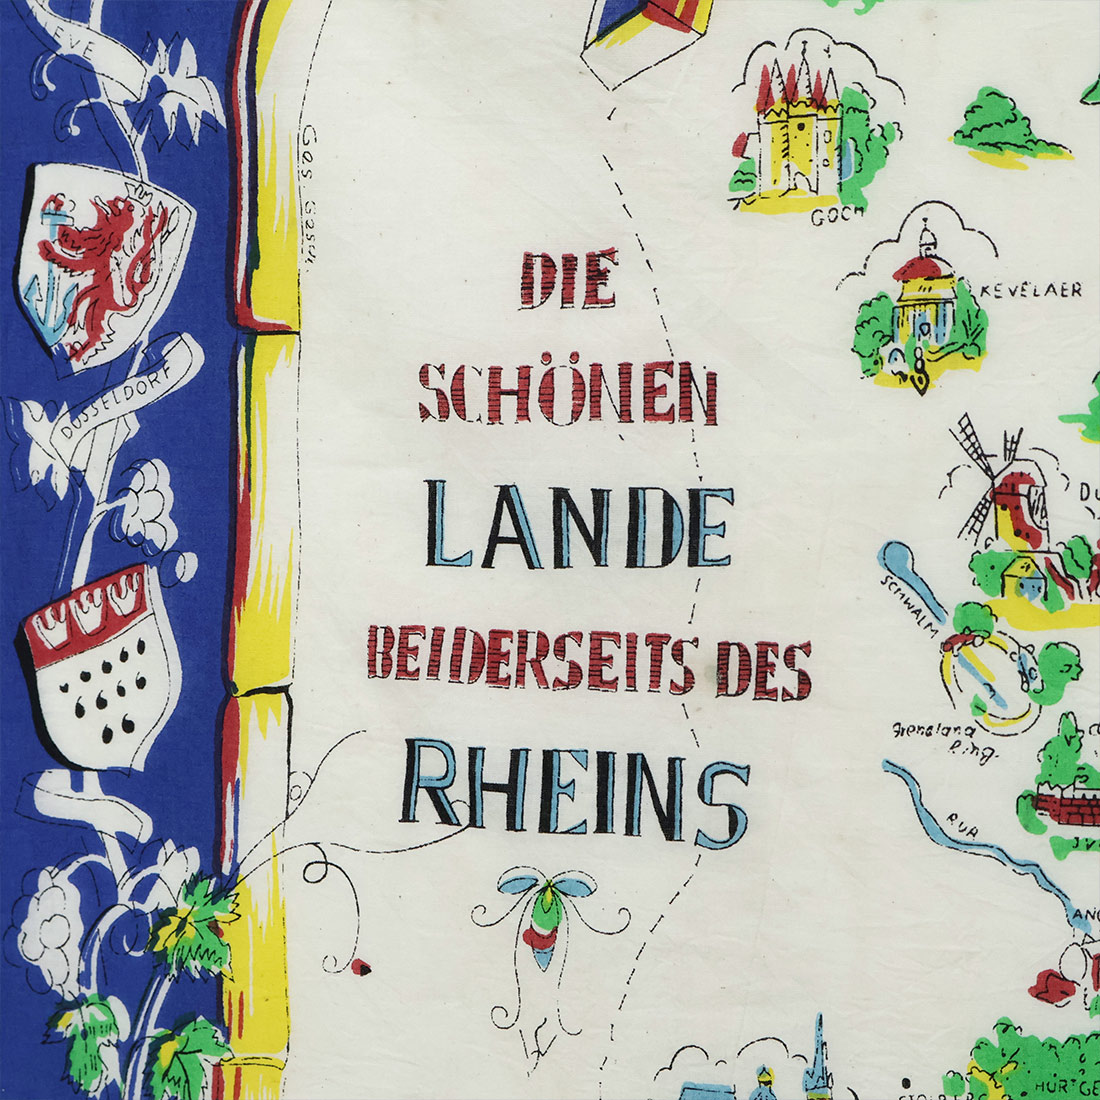 LEVE
Ges. Gesch.
GOCH
DIE
SCHÖNEN
LANDE
BEIDERSEITS DES
RHEINS
KEVELAER
DÜSSELDORF
DU
SCHWALM
Grenzland
Ring.
RUR
AND
HÜRTGE
STOLBERG